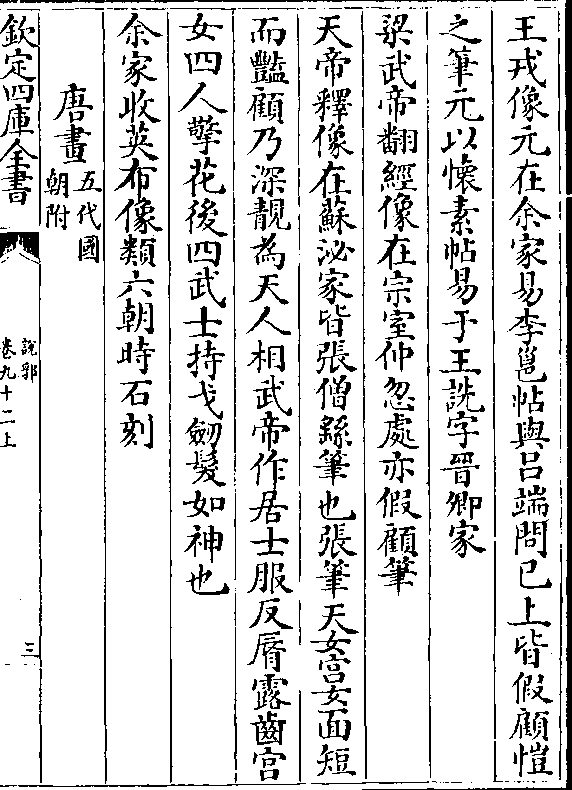 王戎像元在余家易李邕帖與吕端問已上皆假顧愷
之筆元以懷素帖易于王詵字晉卿家
梁武帝翻經像在宗室仲忽處亦假顧筆
天帝釋像在蘇泌家皆張僧繇筆也張筆天女宫女面短
而豔顧乃深靚為天人相武帝作居士服反脣露齒宫
女四人擎花後四武士持戈劒髮如神也
余家收英布像類六朝時石刻
唐畫五代國朝附
欽定四庫全書
說郛
卷九十二上
三